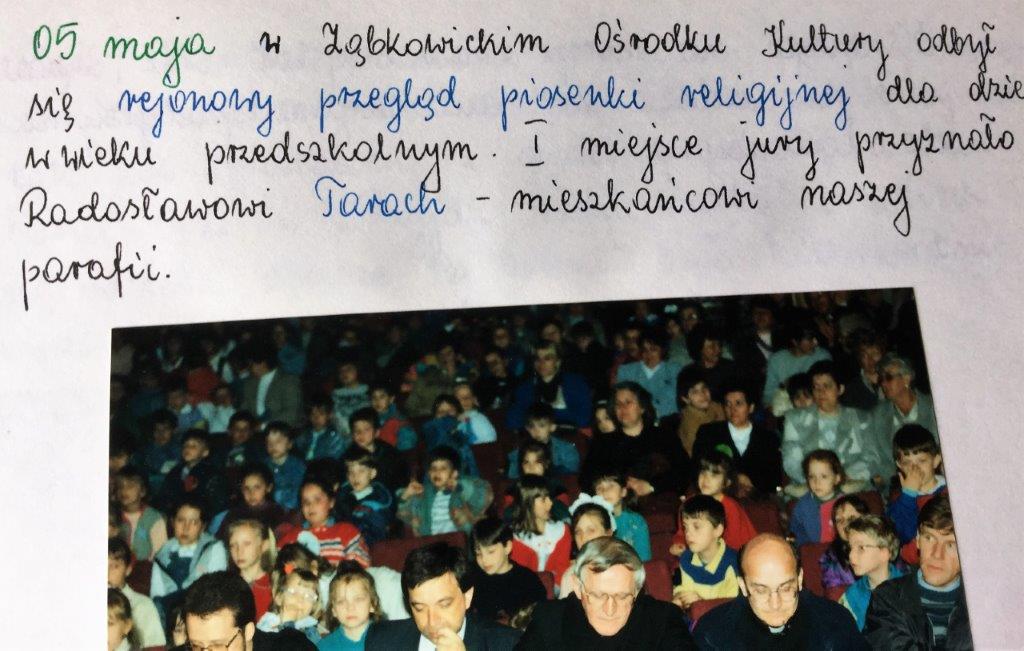 05 maja w Ząbkowickim Ośrodku Kultury odbył
się rejonowy przegląd piosenki religijnej dla dzie
w wieku przedszkolnym. I miejsce jury przyznało
Radosławowi Tarach - mieszkańcowi naszej
parafii.